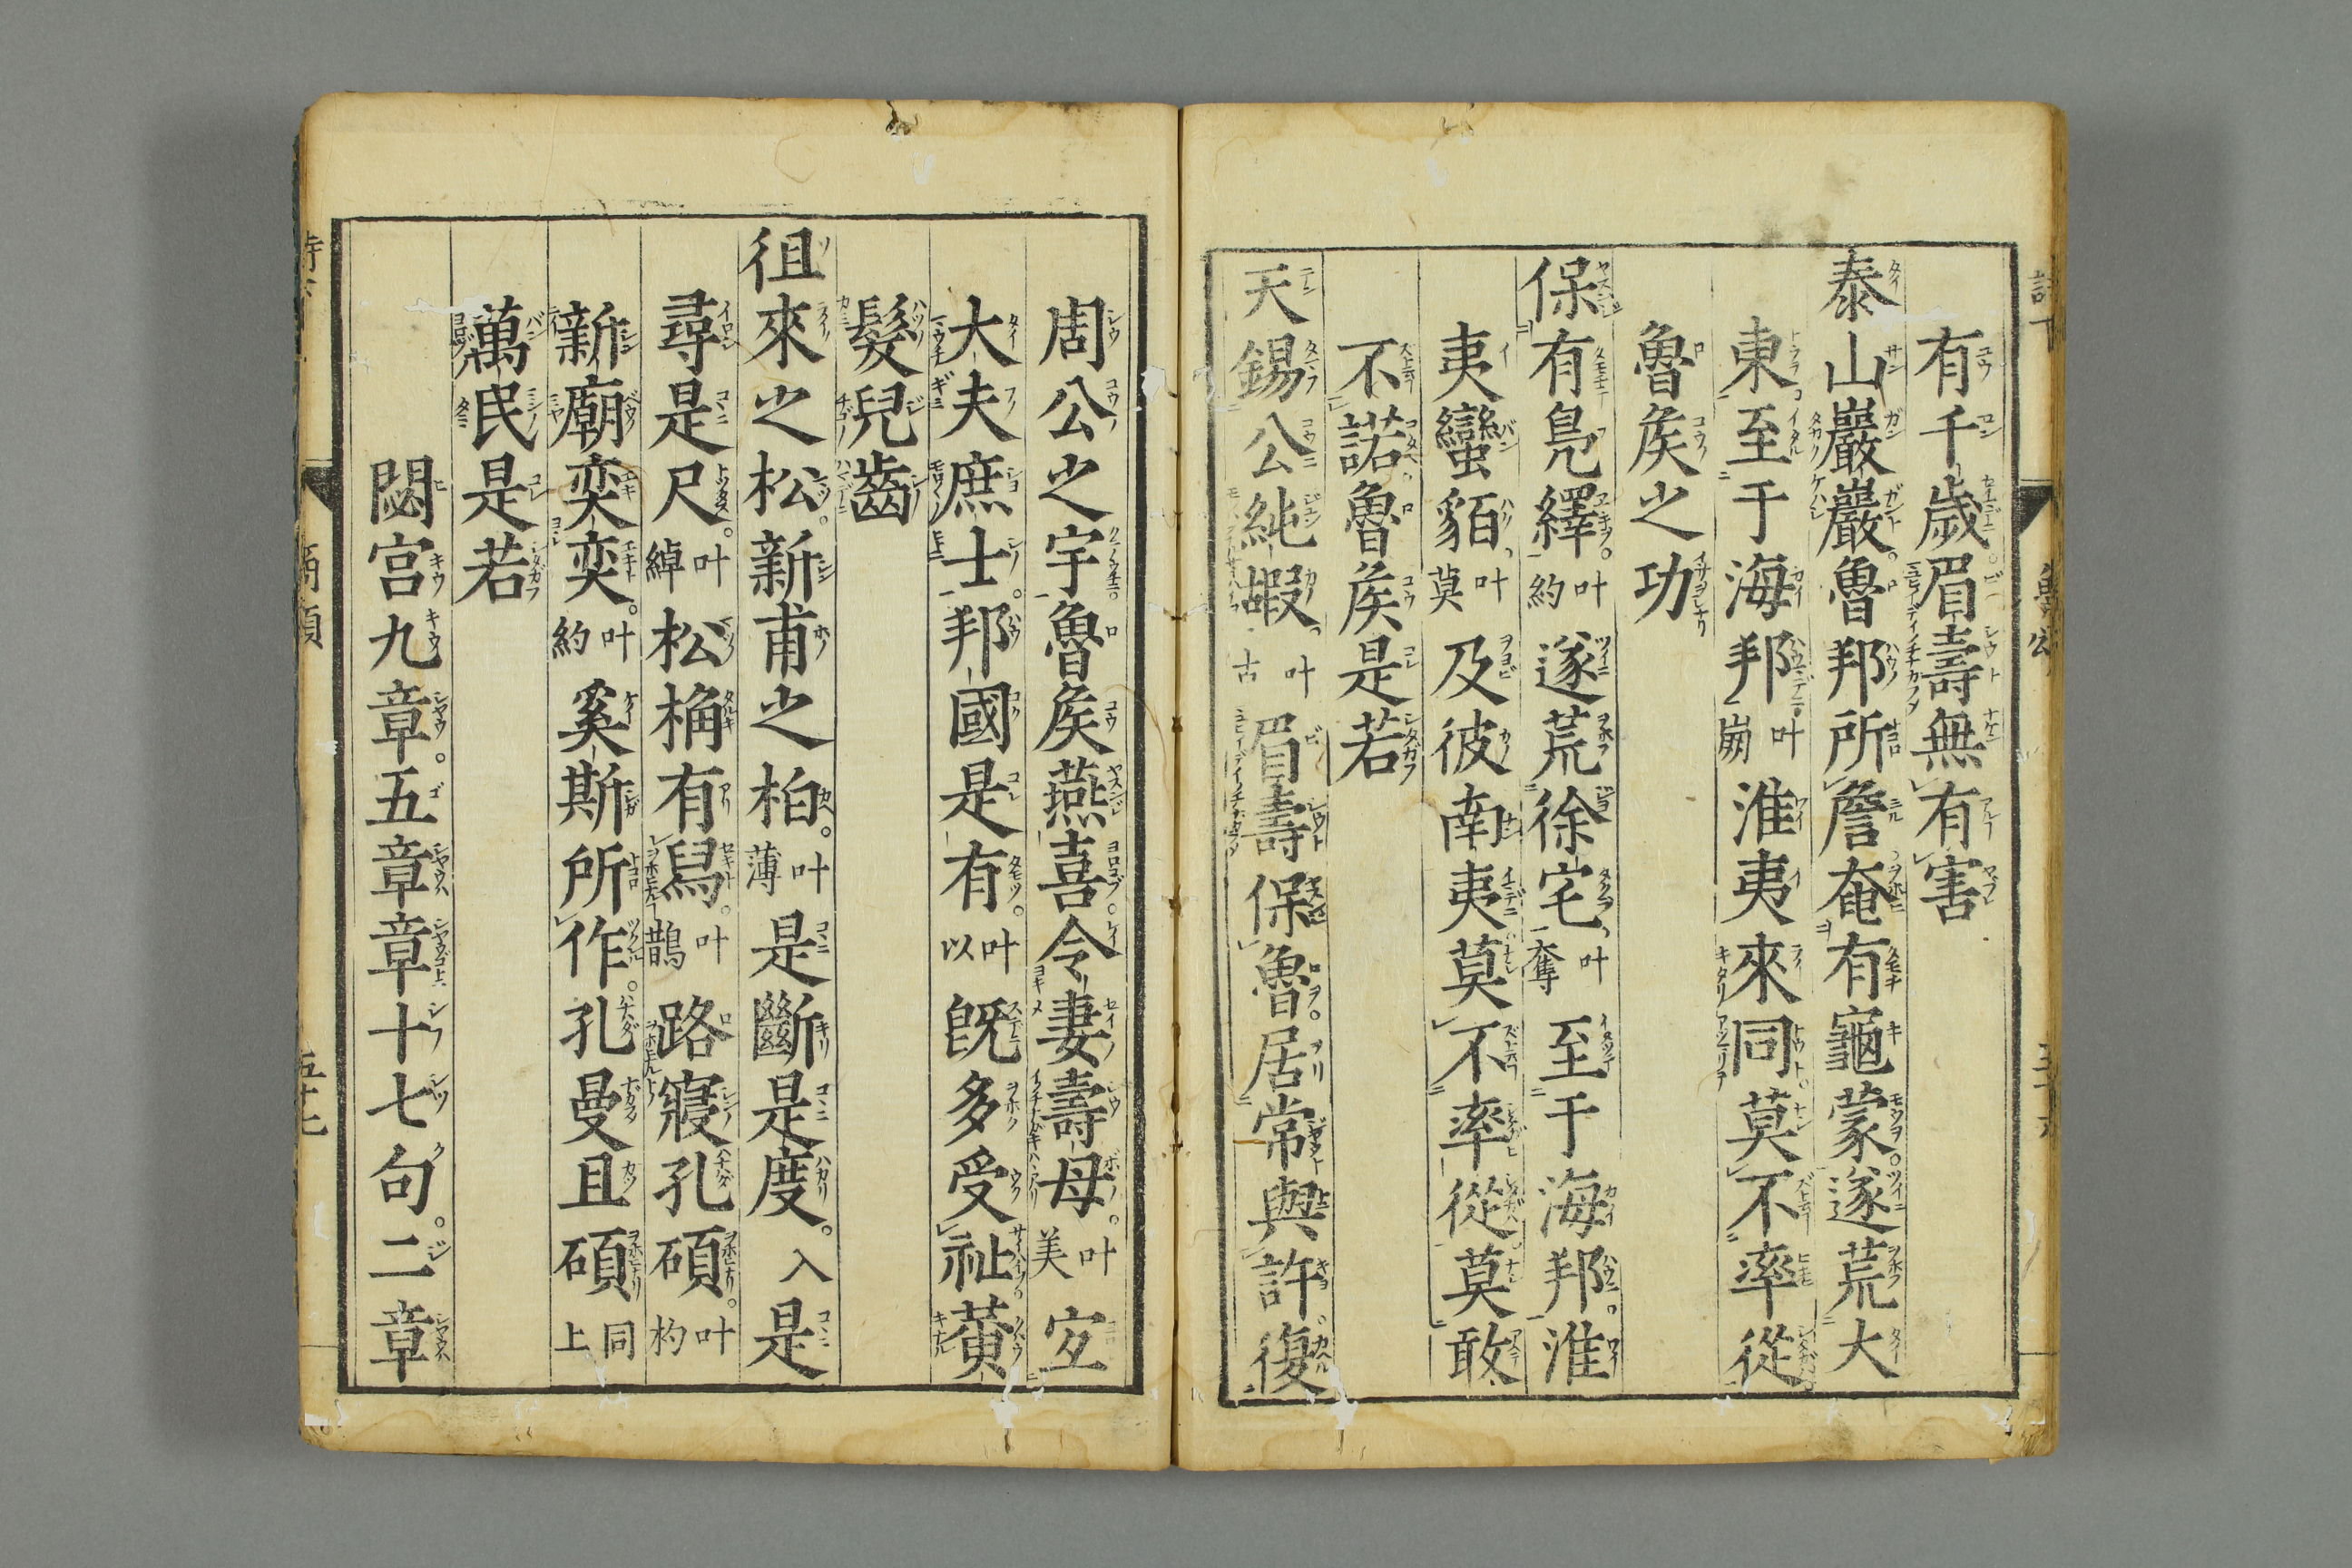 有千歲眉壽無有害
泰山巖巖魯邦所詹奄有龜蒙遂荒大
東至于海邦叶崩淮夷來同莫不率從
魯矦之功
保有鳧繹叶約遂荒徐宅叶奪至于海邦淮
夷蠻貊叶莫及彼南夷莫不率從莫敢
不諾魯矦是若
天錫公純嘏叶古眉壽保魯居常與許復
周公之宇魯矦燕喜令妻壽母叶美宜
大夫庶士邦國是有叶以旣多受祉黃
髮兒齒
徂來之松新甫之柏叶薄是斷是度入是
尋是尺叶綽松桷有舄叶鵲路寢孔碩叶杓
新廟奕奕叶約奚斯所作孔曼且碩同上
萬民是若
閟宮九章五章章十七句二章